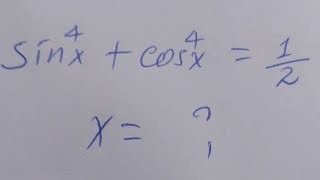 sin⁴x + cos⁴x = 1/2
x = ?